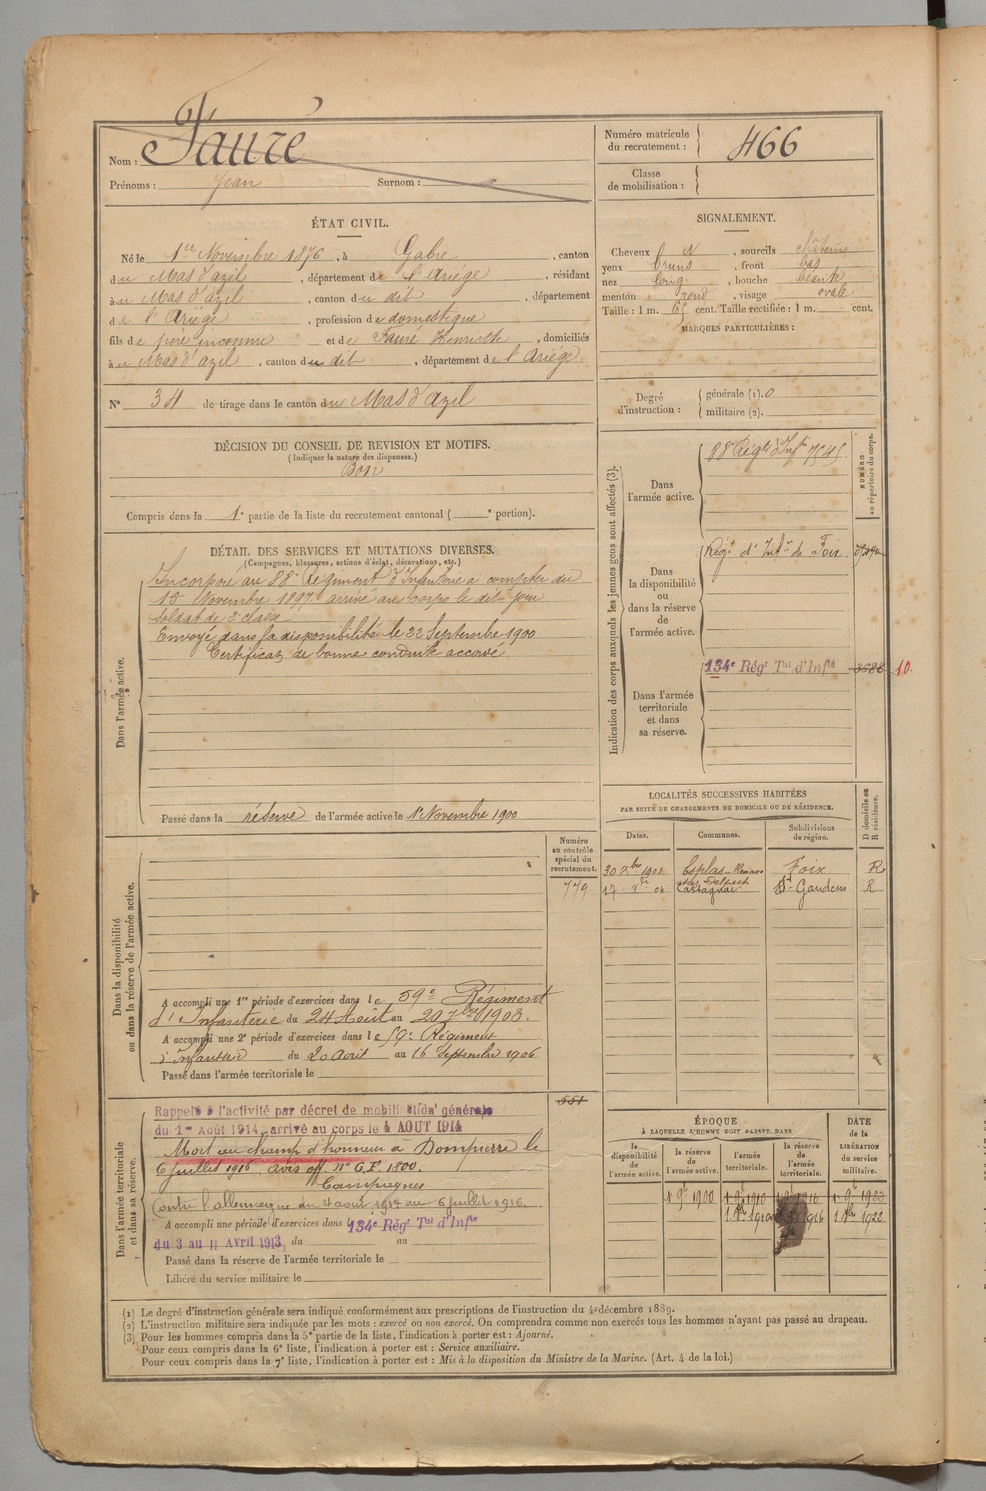 Nom : Fauré
Prénoms : Jean Surnom :
Numéro matricule du recrutement : 466
Classe de mobilisation :
ÉTAT CIVIL.
Né le 1er Novembre 1876, à Gabre, canton
du Mas d'azil, département de l'Ariège, résidant
à u Mas d'azil, canton du dit, département
de l'Ariège, profession de domestique
fils de père inconnu et de Faure Henriette, domiciliés
à u Mas d'azil, canton du dit, département de l'Ariège
N° 34 de tirage dans le canton du Mas d'Azil
DÉCISION DU CONSEIL DE REVISION ET MOTIFS.
(Indiquer la nature des dispenses.)
Bon
Compris dans la 1e partie de la liste du recrutement cantonal ( e portion).
SIGNALEMENT.
Cheveux N, sourcils châtains
yeux bruns, front bas
nez long, bouche béante
menton rond, visage ovale
Taille : 1 m. 65 cent. Taille rectifiée : 1 m. cent.
MARQUES PARTICULIÈRES :
Degré d'instruction : générale (1). 0
militaire (2).
DÉTAIL DES SERVICES ET MUTATIONS DIVERSES.
(Campagnes, blessures, actions d'éclat, décorations, etc.)
Dans l'armée active.
Incorporé au 88e Régiment d'Infanterie à compter du
15 Novembre 1897 arrivé au corps le dit jour
Soldat de 2e classe
Envoyé dans la disponibilité le 22 Septembre 1900
Certificat de bonne conduite accordé
Passé dans la réserve de l'armée active le 1er Novembre 1900
Indication des corps auxquels les jeunes gens sont affectés (3).
NUMÉRO au répertoire du corps.
Dans l'armée active.
88e Régt d'Infie 7545
Dans la disponibilité ou dans la réserve de l'armée active.
Régt d'Infie de Foix
Dans l'armée territoriale et dans sa réserve.
134e Régt Tal d'Infie 3688 10.
LOCALITÉS SUCCESSIVES HABITÉES
PAR SUITE DE CHANGEMENTS DE DOMICILE OU DE RÉSIDENCE.
Dates. Communes. Subdivisions de région. D domicile ou R résidence.
30 Xbre 1901 Esplas Foix R
17 04 St Gaudens R
Dans la disponibilité ou dans la réserve de l'armée active.
Numéro au contrôle spécial du recrutement.
779
A accompli une 1re période d'exercices dans le 59e Régiment
d'Infanterie du 24 Août au 20 7bre 1903.
A accompli une 2e période d'exercices dans le 59e Régiment
d'Infanterie du 20 Août au 16 Septembre 1906
Passé dans l'armée territoriale le
Dans l'armée territoriale et dans sa réserve.
551
Rappelé à l'activité par décret de mobilisation générale
du 1er Août 1914, arrivé au corps le 4 AOUT 1914
Mort au champ d'honneur à Dompierre le
6 juillet 1916 avis off. n° G.F. 1800.
Campagnes
Contre l'allemagne du 4 août 1914 au 6 juillet 1916.
A accompli une période d'exercices dans l 134e Régt Tal d'Infie
du 3 au 11 Avril 1913, du au
Passé dans la réserve de l'armée territoriale le
Libéré du service militaire le
ÉPOQUE
À LAQUELLE L'HOMME DOIT PASSER DANS
DATE de la LIBÉRATION du service militaire.
la disponibilité de l'armée active. la réserve de l'armée active. l'armée territoriale. la réserve de l'armée territoriale.
1 9bre 1900 1 9bre 1910 1 9bre 1916 1 9bre 1922
1 1910 1916 1 1922
(1) Le degré d'instruction générale sera indiqué conformément aux prescriptions de l'instruction du 4 décembre 1889.
(2) L'instruction militaire sera indiquée par les mots : exercé ou non exercé. On comprendra comme non exercés tous les hommes n'ayant pas passé au drapeau.
(3) Pour les hommes compris dans la 5e partie de la liste, l'indication à porter est : Ajourné.
Pour ceux compris dans la 6e liste, l'indication à porter est : Service auxiliaire.
Pour ceux compris dans la 7e liste, l'indication à porter est : Mis à la disposition du Ministre de la Marine. (Art. 4 de la loi.)